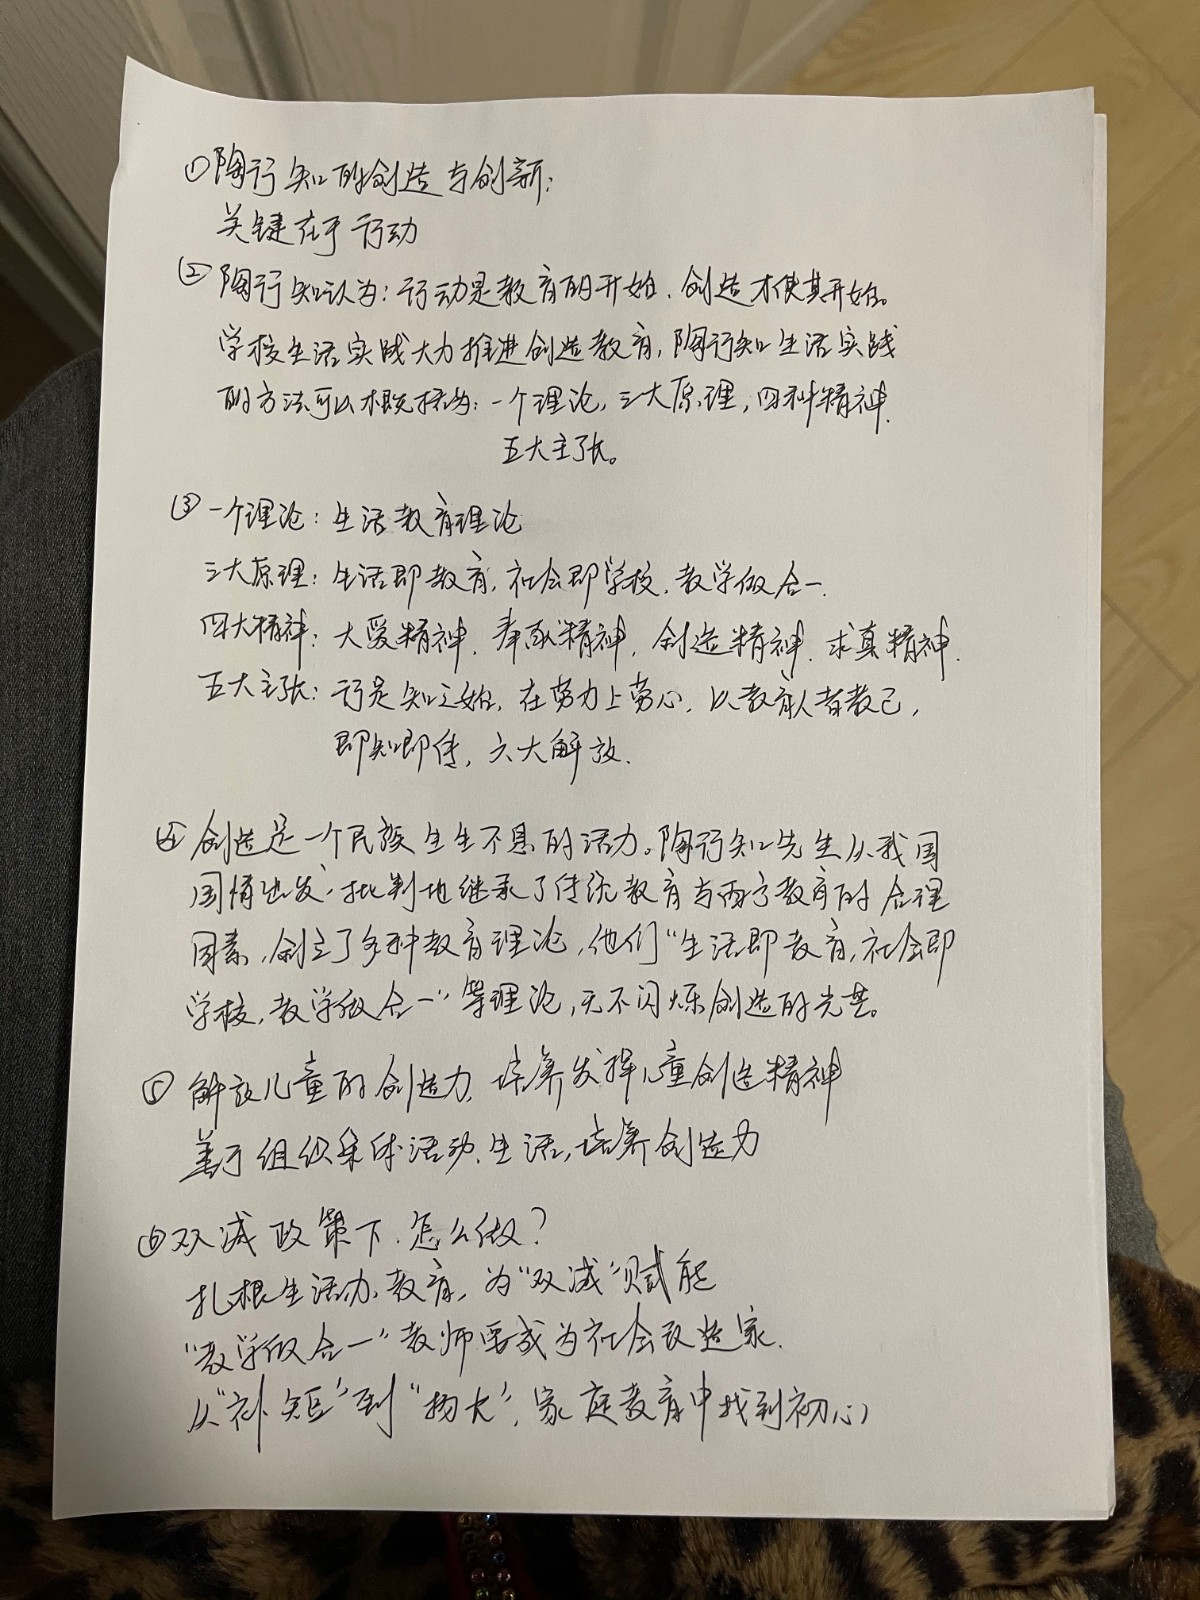 ①陶行知的创造与创新:
关键在于行动
②陶行知认为:行动是教育的开始、创造才使其开始。
学校生活实践大力推进创造教育,陶行知生活实践
的方法可以概括为:一个理论,三大原理,四种精神、
五大主张。
③一个理论:生活教育理论
三大原理:生活即教育,社会即学校、教学做合一
四大精神:大爱精神、奉献精神,创造精神、求真精神、
五大主张:行是知之始,在劳力上劳心,以教育人者教己,
即知即传,六大解放、
④创造是一个民族生生不息的活力。陶行知先生从我国
国情出发,批判地继承了传统教育与西方教育的合理
因素,创立了多种教育理论,他们"生活即教育,社会即
学校,教学做合一"等理论,无不闪烁创造的光芒。
⑤解放儿童的创造力、培养发挥儿童创造精神
善于组织集体活动、生活,培养创造力
⑥双减政策下、怎么做?
扎根生活办教育,为"双减"赋能
"教学做合一"教师要成为社会改造家、
从"补短"到"扬长",家庭教育中找到初心